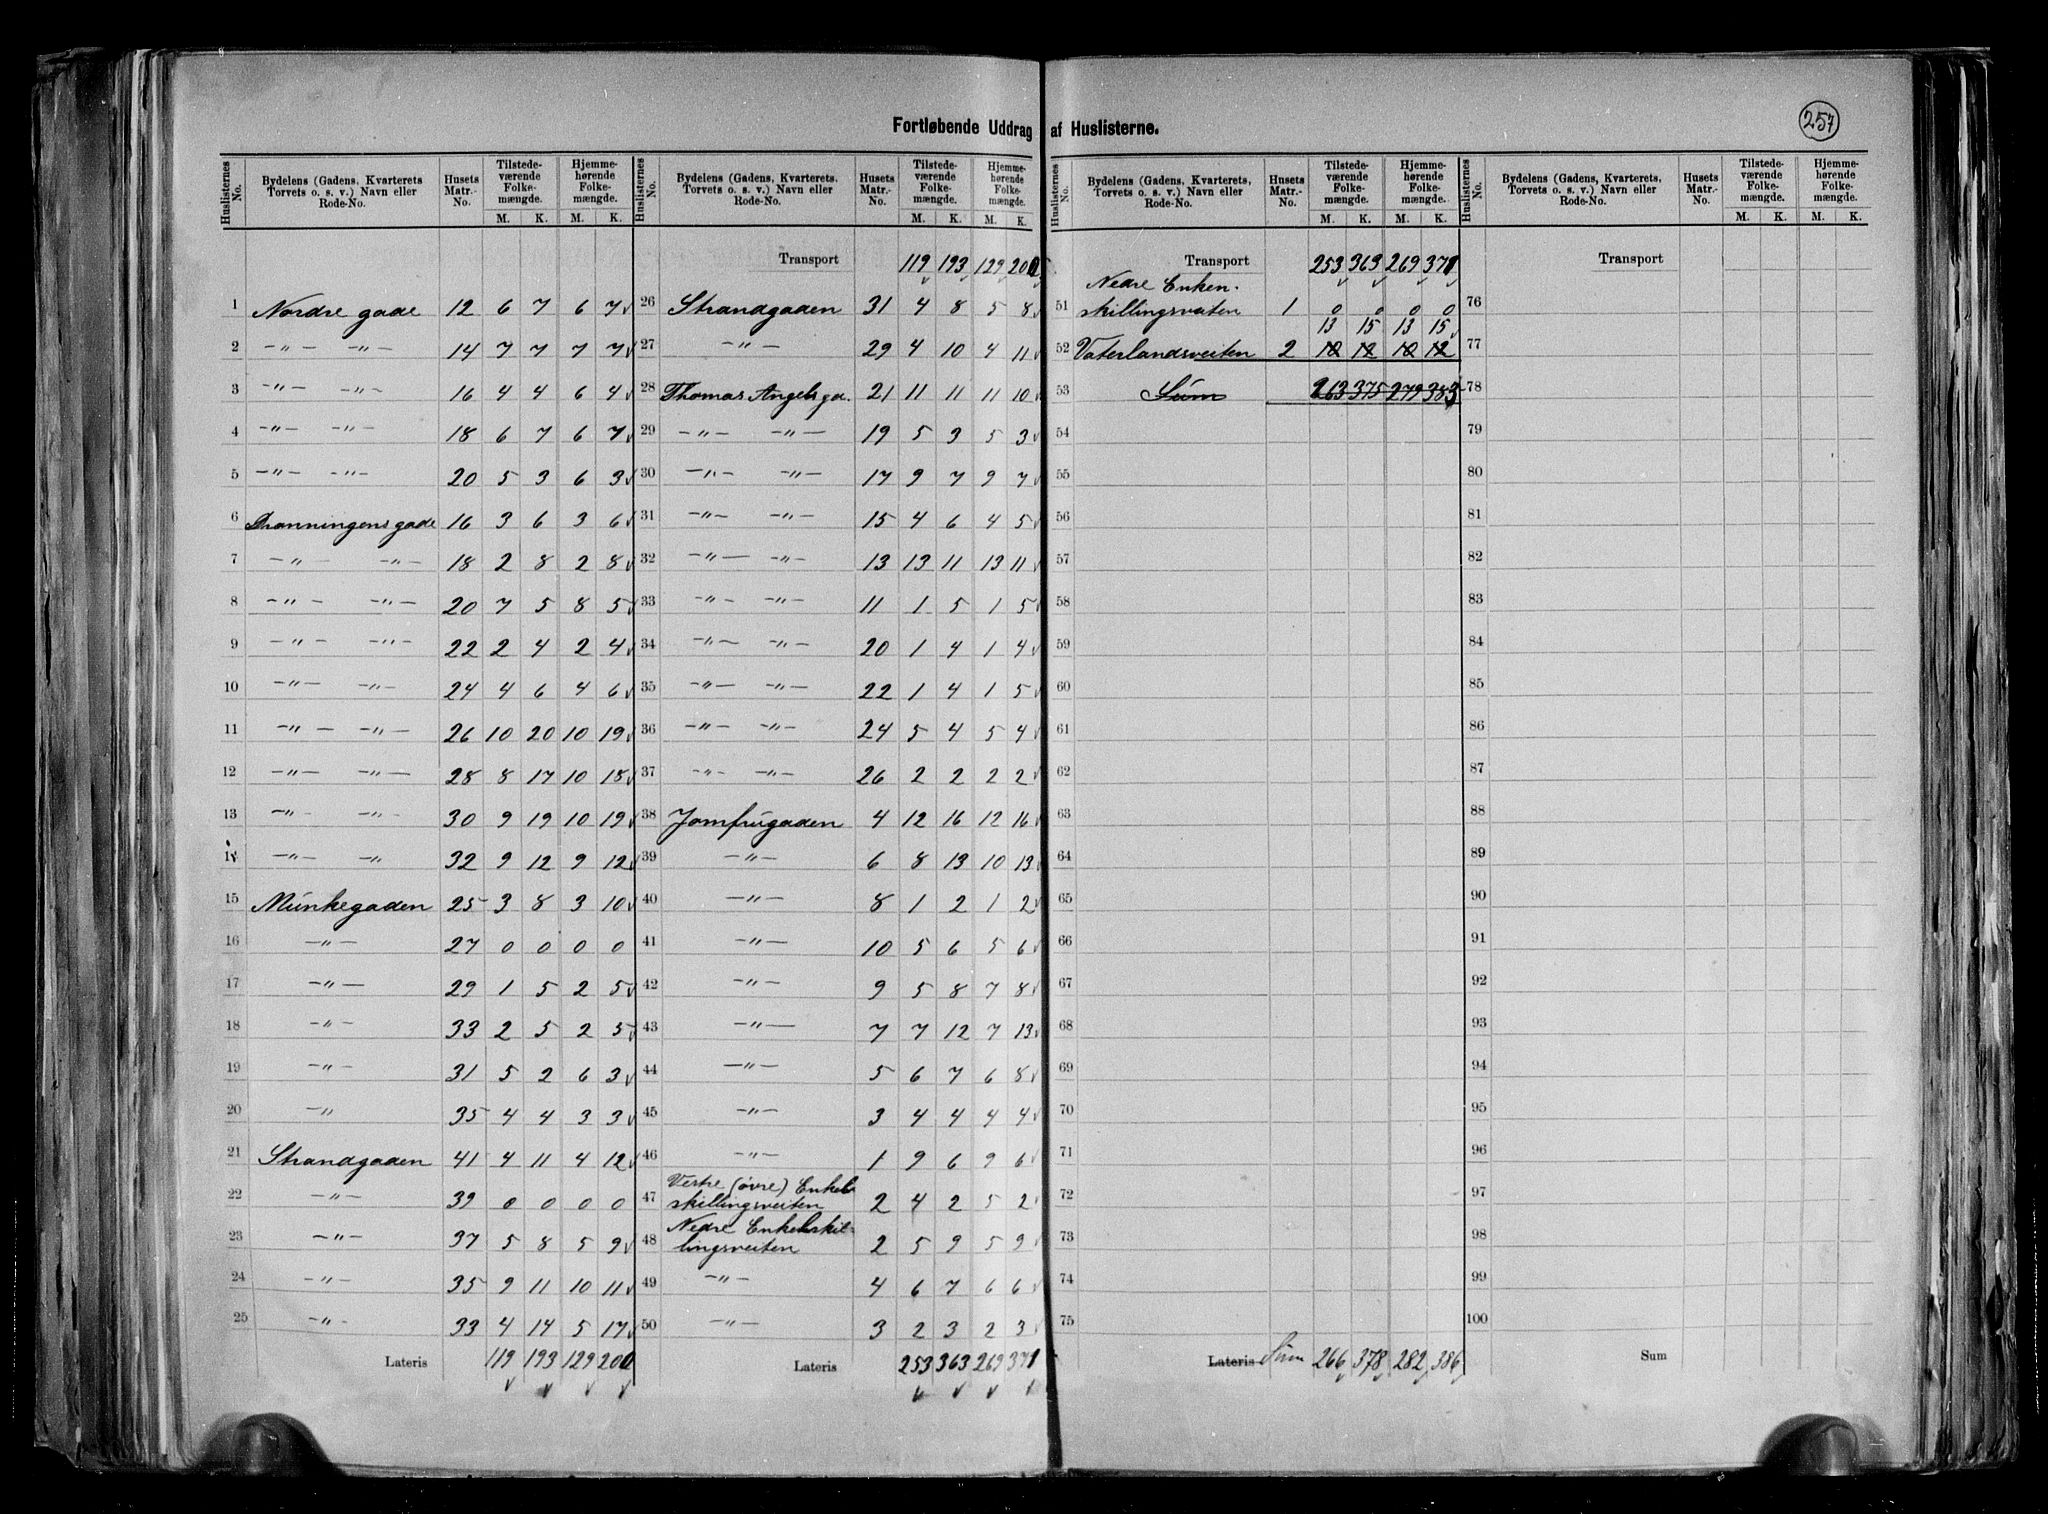 Fortløbende Uddrag af Huslisterne.
257
Huslisternes No. | Bydelens (Gadens, Kvarterets, Torvets o. s. v.) Navn eller Rode-No. | Husets Matr.-No. | Tilstedeværende Folkemængde. M. K. | Hjemmehørende Folkemængde. M. K.
1 Nordre gade 12 6 7 6 7
2 -"- -"- 14 7 7 7 7
3 -"- -"- 16 4 4 6 4
4 -"- -"- 18 6 7 6 7
5 -"- -"- 20 5 3 6 3
6 Dronningens gade 16 3 6 3 6
7 -"- -"- 18 2 8 2 8
8 -"- -"- 20 7 5 8 5
9 -"- -"- 22 2 4 2 4
10 -"- -"- 24 4 6 4 6
11 -"- -"- 26 10 20 10 19
12 -"- -"- 28 8 17 10 18
13 -"- -"- 30 9 19 10 19
14 -"- -"- 32 9 12 9 12
15 Munkegaden 25 3 8 3 10
16 -"- 27 0 0 0 0
17 -"- 29 1 5 2 5
18 -"- 33 2 5 2 5
19 -"- 31 5 2 6 3
20 -"- 35 4 4 3 3
21 Strandgaden 41 4 11 4 12
22 -"- 39 0 0 0 0
23 -"- 37 5 8 5 9
24 -"- 35 9 11 10 11
25 -"- 33 4 14 5 17
Lateris 119 193 129 200
Huslisternes No. | Bydelens (Gadens, Kvarterets, Torvets o. s. v.) Navn eller Rode-No. | Husets Matr.-No. | Tilstedeværende Folkemængde. M. K. | Hjemmehørende Folkemængde. M. K.
Transport 119 193 129 200
26 Strandgaden 31 4 8 5 8
27 -"- 29 4 10 4 11
28 Thomas Angels ga. 21 11 11 11 10
29 -"- -"- 19 5 3 5 3
30 -"- -"- 17 9 7 9 7
31 -"- -"- 15 4 6 4 5
32 -"- -"- 13 13 11 13 11
33 -"- -"- 11 1 5 1 5
34 -"- -"- 20 1 4 1 4
35 -"- -"- 22 1 4 1 5
36 -"- -"- 24 5 4 5 4
37 -"- -"- 26 2 2 2 2
38 Jomfrugaden 4 12 16 12 16
39 -"- 6 8 13 10 13
40 -"- 8 1 2 1 2
41 -"- 10 5 6 5 6
42 -"- 9 5 8 7 8
43 -"- 7 7 12 7 13
44 -"- 5 6 7 6 8
45 -"- 3 4 4 4 4
46 -"- 1 9 6 9 6
47 Vestre (øvre) Enkel-
skillingsveiten 2 4 2 5 2
48 Nedre Enkelskil-
lingsveiten 2 5 9 5 9
49 -"- 4 6 7 6 6
50 -"- 3 2 3 2 3
Lateris 253 363 269 371
Huslisternes No. | Bydelens (Gadens, Kvarterets, Torvets o. s. v.) Navn eller Rode-No. | Husets Matr.-No. | Tilstedeværende Folkemængde. M. K. | Hjemmehørende Folkemængde. M. K.
Transport 253 363 269 371
51 Nedre Enken-
skillingsveiten 1 0 0 0 0
13 15 13 15
52 Vaterlandsveiten 2 10 12 10 12
53 Sum 263 375 279 383
54
55
56
57
58
59
60
61
62
63
64
65
66
67
68
69
70
71
72
73
74
75
Lateris Sum 266 378 282 386
Huslisternes No. | Bydelens (Gadens, Kvarterets, Torvets o. s. v.) Navn eller Rode-No. | Husets Matr.-No. | Tilstedeværende Folkemængde. M. K. | Hjemmehørende Folkemængde. M. K.
Transport
76
77
78
79
80
81
82
83
84
85
86
87
88
89
90
91
92
93
94
95
96
97
98
99
100
Sum